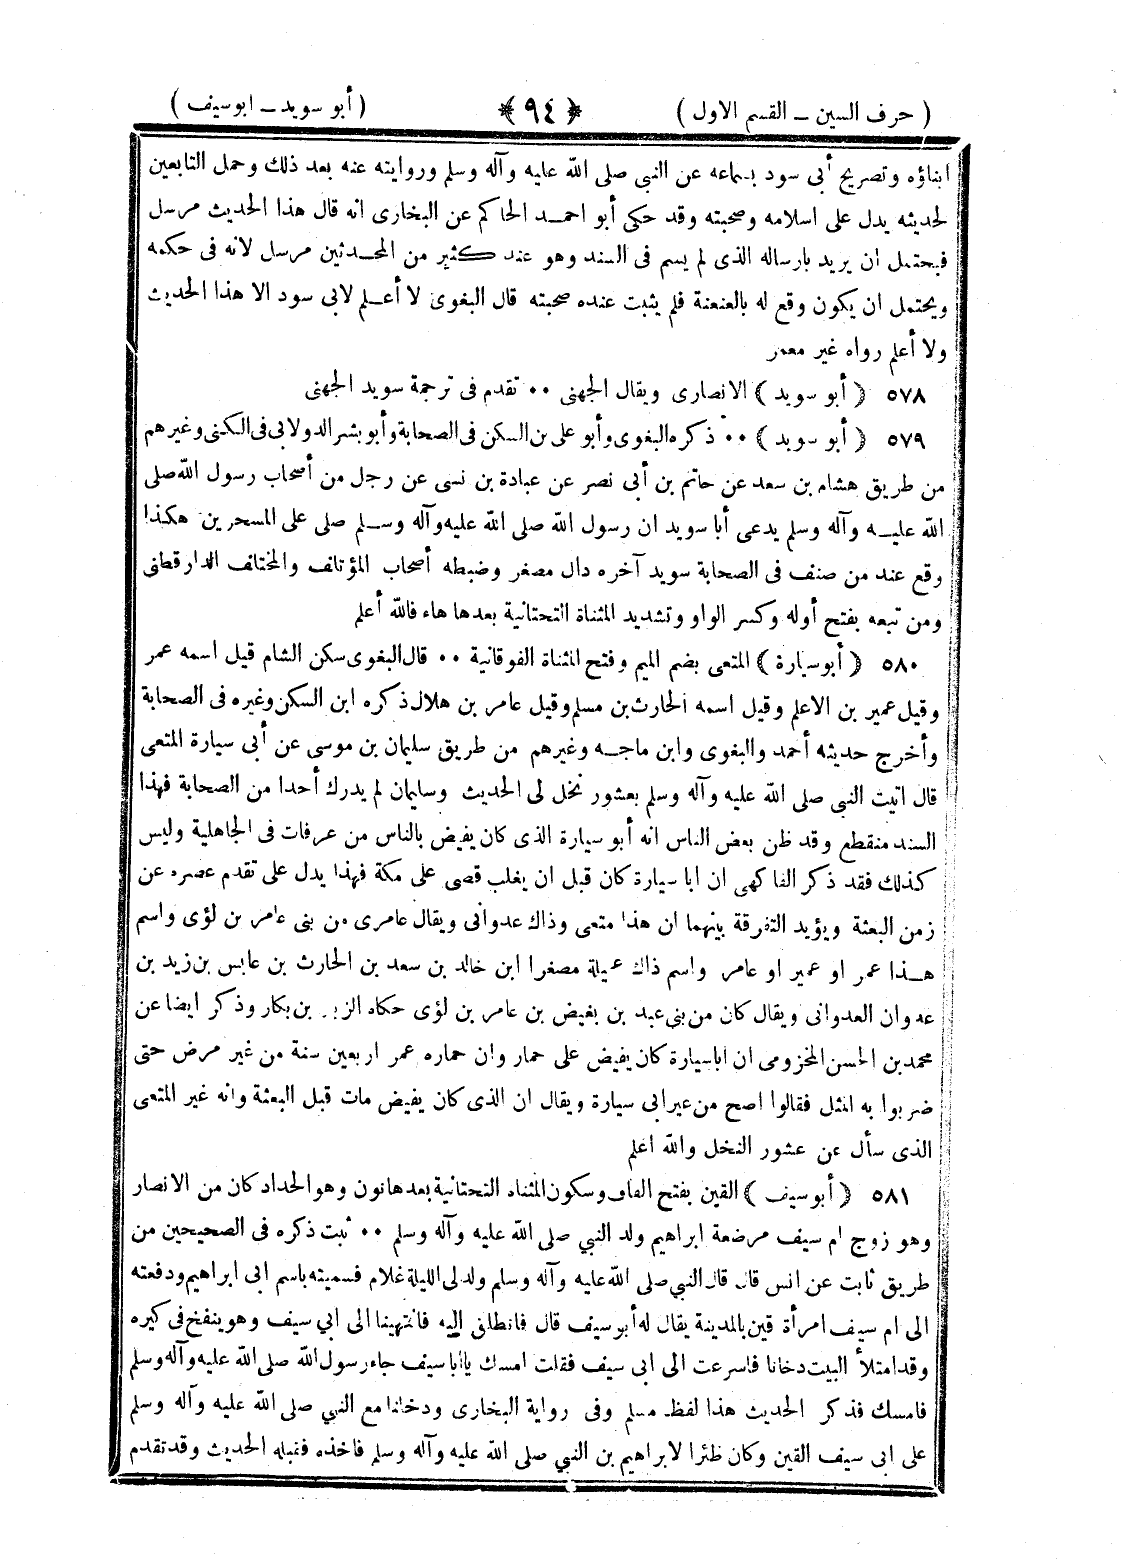 ( حرف السين ــ القسم الاول ) ﴿ ٩٤ ﴾ ( أبو سويد ــ ابوسيف )
ابناؤه وتصريح أبى سود بسماعه عن النبى صلى الله عليه وآله وسلم وروايته عنه بعد ذلك وحمل التابعين
لحديثه يدل على اسلامه وصحبته وقد حكى أبو احمد الحاكم عن البخارى انه قال هذا الحديث مرسل
فيحتمل ان يريد بارساله الذى لم يسم فى السند وهو عند كثير من المحدثين مرسل لانه فى حكمه
ويحتمل ان يكون وقع له بالعنعنة فلم يثبت عنده صحبته قال البغوى لا أعلم لابى سود الا هذا الحديث
ولا أعلم رواه غير معمر
٥٧٨ ﴿ أبو سويد ﴾ الانصارى ويقال الجهنى ٠٠ تقدم فى ترجمة سويد الجهنى
٥٧٩ ﴿ أبو سويد ﴾ ٠٠ ذكره البغوى وأبو على بن السكن فى الصحابة وأبو بشر الدولابى فى الكنى وغيرهم
من طريق هشام بن سعد عن حاتم بن أبى نصر عن عبادة بن نسى عن رجل من أصحاب رسول الله صلى
الله عليه وآله وسلم يدعى أبا سويد ان رسول الله صلى الله عليه وآله وسلم صلى على المسحرين هكذا
وقع عند من صنف فى الصحابة سويد آخره دال مصغر وضبطه أصحاب المؤتلف والمختلف الدارقطنى
ومن تبعه بفتح أوله وكسر الواو وتشديد المثناة التحتانية بعدها هاء فالله أعلم
٥٨٠ ﴿ أبوسيارة ﴾ المتعى بضم الميم وفتح المثناة الفوقانية ٠٠ قال البغوى سكن الشام قيل اسمه عمر
وقيل عمير بن الاعلم وقيل اسمه الحارث بن مسلم وقيل عامر بن هلال ذكره ابن السكن وغيره فى الصحابة
وأخرج حديثه أحمد والبغوى وابن ماجه وغيرهم من طريق سليمان بن موسى عن أبي سيارة المتعى
قال اتيت النبى صلى الله عليه وآله وسلم بعشور نخل لى الحديث وسليمان لم يدرك أحدا من الصحابة فهذا
السند منقطع وقد ظن بعض الناس انه أبو سيارة الذى كان يفيض بالناس من عرفات فى الجاهلية وليس
كذلك فقد ذكر الفاكهى ان ابا سيارة كان قبل ان يغلب قصى على مكة فهذا يدل على تقدم عصره عن
زمن البعثة ويؤيد التفرقة بينهما ان هذا متعى وذاك عدوانى ويقال عامرى من بنى عامر بن لؤى واسم
هذا عمر او عمير او عامر واسم ذاك عميلة مصغرا ابن خالد بن سعد بن الحارث بن عابس بن زيد بن
عدوان العدوانى ويقال كان من بنى عبد بن بغيض بن عامر بن لؤى حكاه الزبير بن بكار وذكر ايضا عن
محمد بن الحسن المخزومى ان اباسيارة كان يفيض على حمار وان حماره عمر اربعين سنة من غير مرض حتى
ضربوا به المثل فقالوا اصح من عير ابى سيارة ويقال ان الذى كان يفيض مات قبل البعثة وانه غير المتعى
الذى سأل عن عشور النخل والله اعلم
٥٨١ ﴿ أبوسيف ﴾ القين بفتح القاف وسكون المثناه التحتانية بعدها نون وهو الحداد كان من الانصار
وهو زوج ام سيف مرضعة ابراهيم ولد النبي صلى الله عليه وآله وسلم ٠٠ ثبت ذكره فى الصحيحين من
طريق ثابت عن انس قال قال النبي صلى الله عليه وآله وسلم ولد لى الليلة غلام فسميته باسم ابى ابراهيم ودفعته
الى ام سيف امرأة قين بالمدينة يقال له أبو سيف قال فانطلق اليه فانتهينا الى ابي سيف وهو ينفخ فى كيره
وقد امتلأ البيت دخانا فاسرعت الى ابى سيف فقلت امسك يا أبا سيف جاء رسول الله صلى الله عليه وآله وسلم
فامسك فذكر الحديث هذا لفظ مسلم وفى رواية البخارى ودخلنا مع النبي صلى الله عليه وآله وسلم
على ابى سيف القين وكان ظئرا لابراهيم بن النبي صلى الله عليه وآله وسلم فاخذه فقبله الحديث وقد تقدم